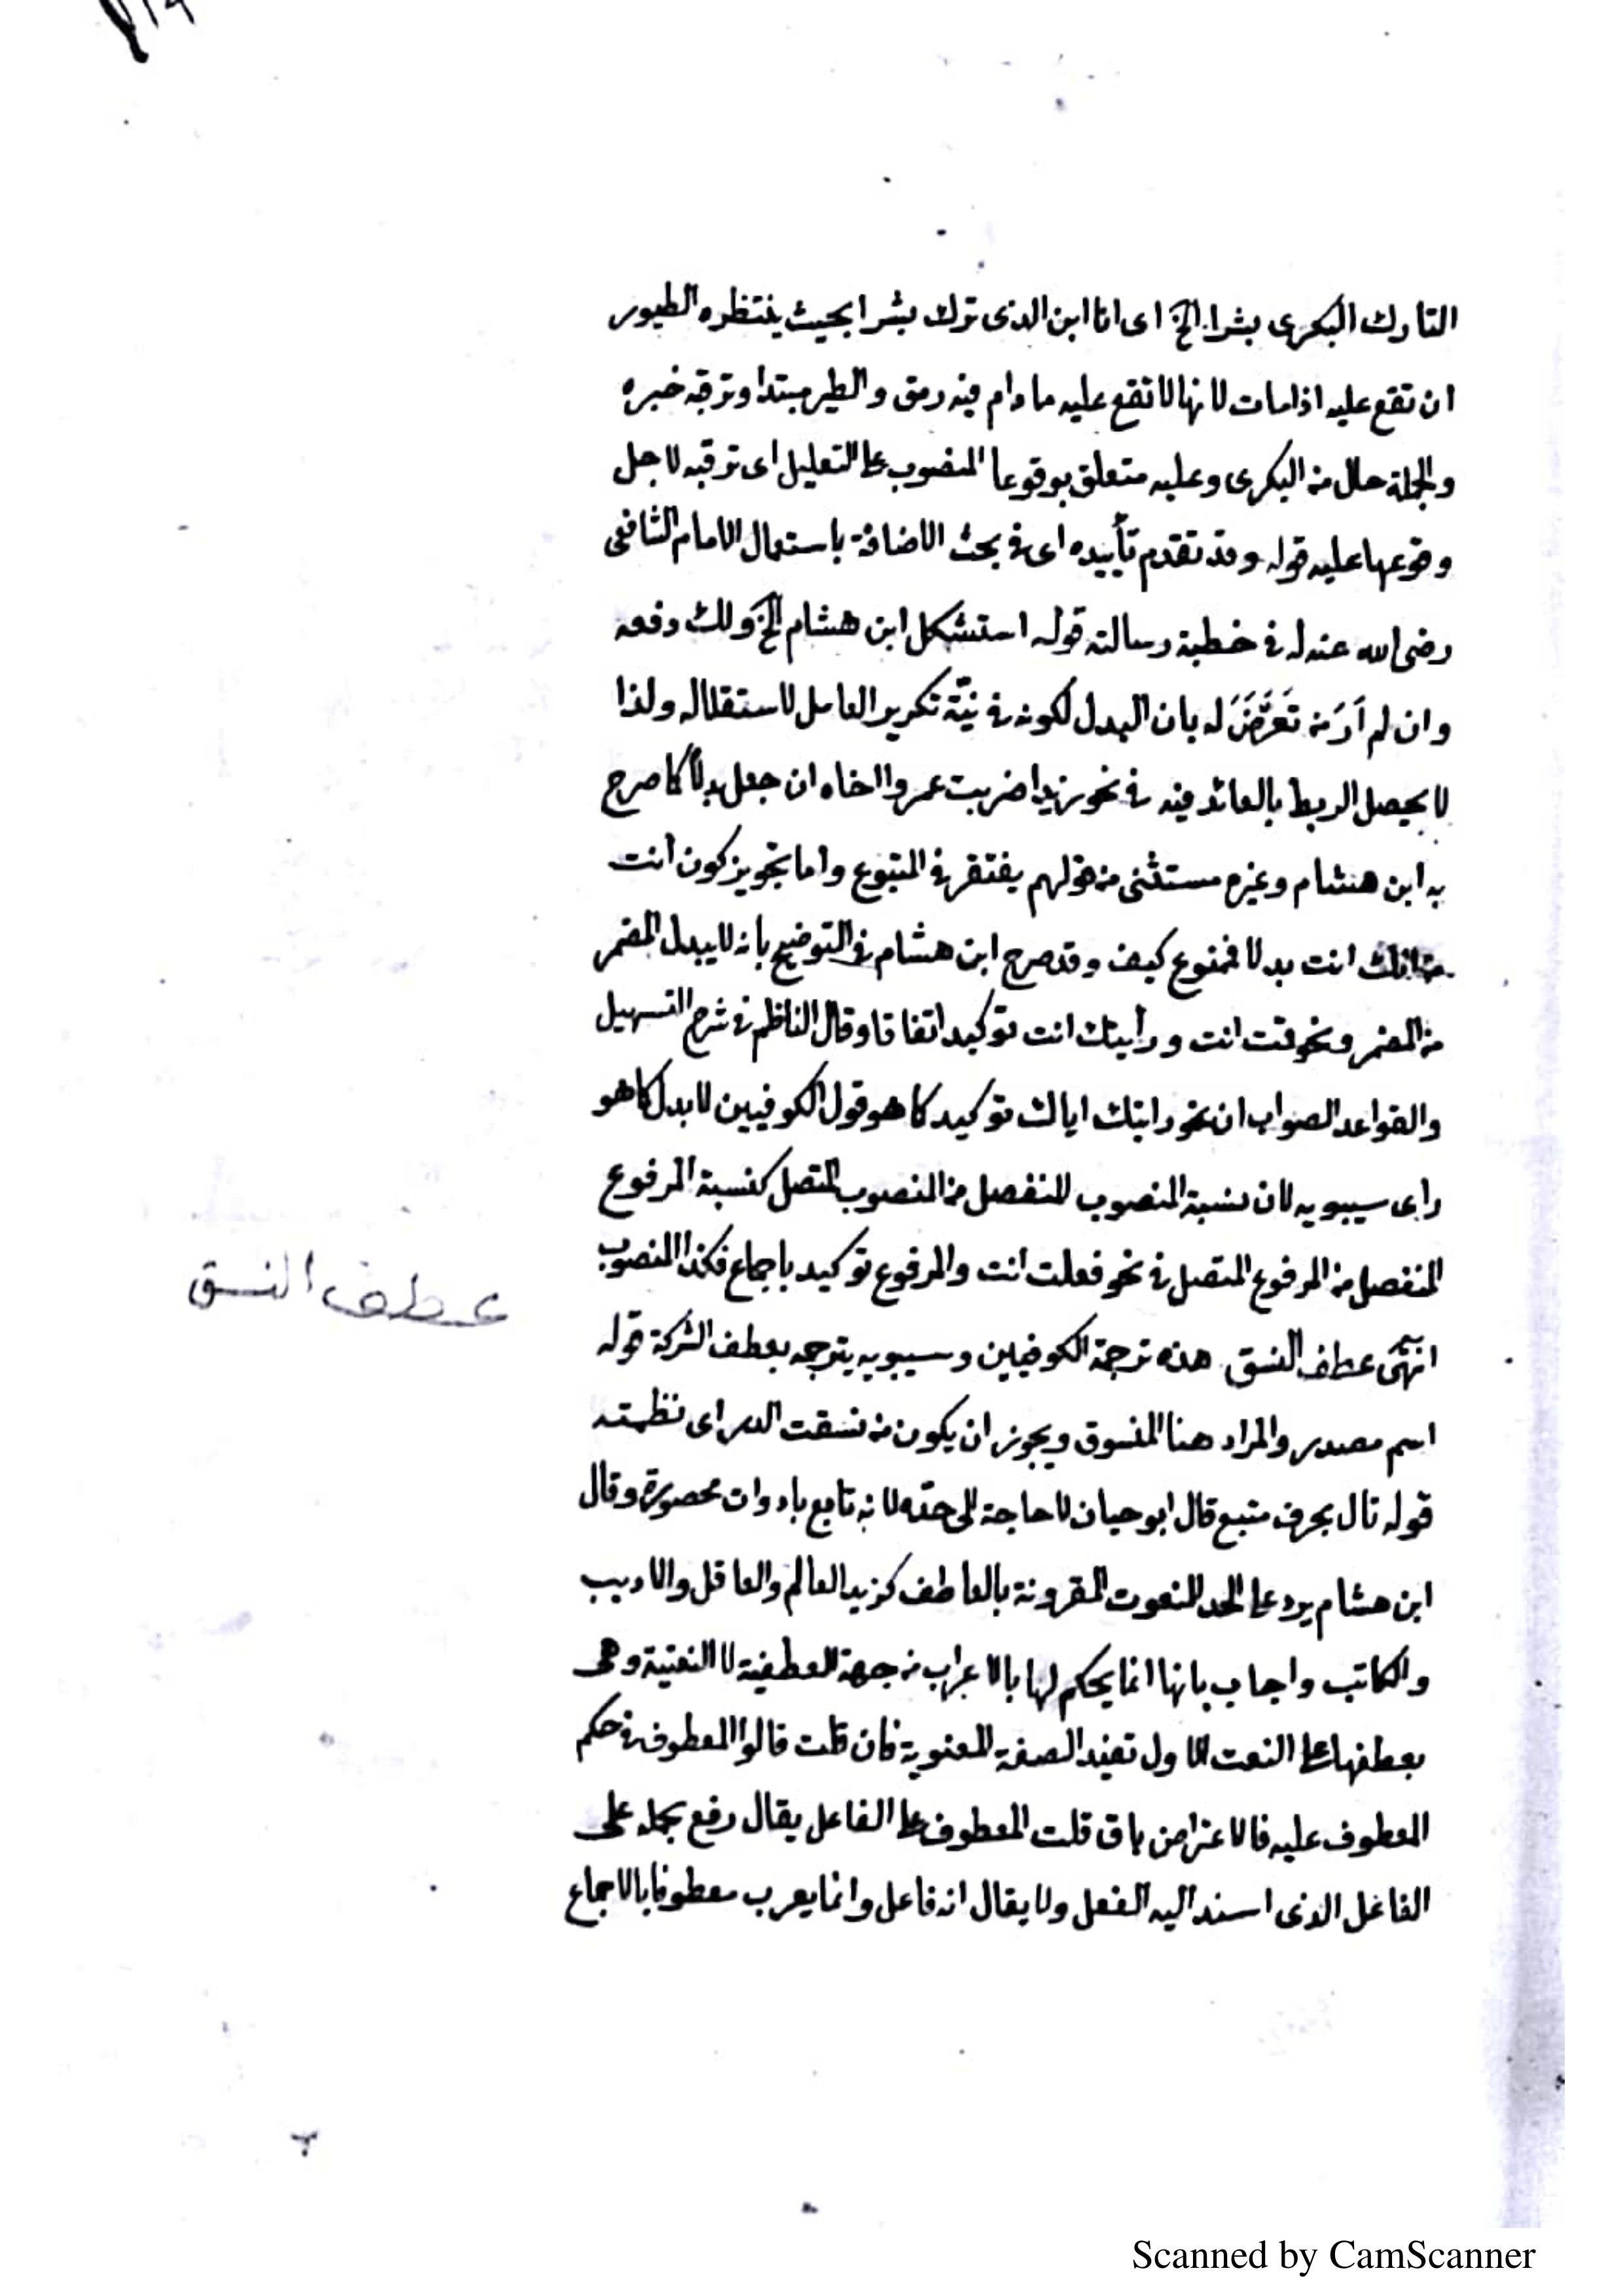 التارك البكرى بشرا الخ اى انا ابن الذى ترك بشرا بحيث ينتظره الطيور
ان تقع عليه اذا مات لانها لا تقع عليه ما دام فيه رمق والطير مبتدا وترقبه خبره
والجملة حال من البكرى وعليه متعلق بوقوعا المنصوب على التعليل اى ترقبه لاجل
وقوعها عليه قوله وقد تقدم تأييده اى فى بحث الاضافة باستعمال الامام الشافعى
رضى الله عنه له فى خطبة رسالته قوله استشكل ابن هشام الخ ولك دفعه
وان لم اَرَ من تَعَرَّضَ له بان البدل لكونه فى نيّة تكرير العامل لاستقلاله ولذا
لا يحصل الربط بالعائد فيه فى نحو زيدا ضربت عمروا اخاه ان جعل بدلاً كما صرح
به ابن هشام وغيره مستثنى من قولهم يفتقر فى المتبوع واما تجويز كون انت
من انك انت بدلا فممنوع كيف وقد صرح ابن هشام فى التوضيح بانه لا يبدل المضمر
من المضمر ونحو قمت انت ورأيتك انت توكيد اتفاقا وقال الناظم فى شرح التسهيل
والقواعد الصواب ان نحو رايتك اياك توكيد كما هو قول الكوفيين لا بدل كما هو
راى سيبويه لان نسبة المنصوب المنفصل من المنصوب المتصل كنسبة المرفوع
المنفصل من المرفوع المتصل فى نحو فعلت انت والمرفوع توكيد باجماع فكذا المنصوب
عطف النسق
انتهى عطف النسق هذه ترجمة الكوفيين وسيبويه يترجمه بعطف الشركة قوله
اسم مصدر والمراد هنا المنسوق ويجوز ان يكون من نسقت الدر اى نظمته
قوله تال بحرف متبع قال ابو حيان لا حاجة الى حدّه لانه تابع بادوات محصورة وقال
ابن هشام يرد على الحد النعوت المقرونة بالعاطف كزيد العالم والعاقل والاديب
والكاتب واجاب بانها انما يحكم لها بالاعراب من جهة العطفية لا النعتية وهى
بعطفها على النعت الاول تفيد الصفة المعنوية فان قلت قالوا المعطوف فى حكم
المعطوف عليه فالاعتراض باق قلت المعطوف على الفاعل يقال رفع بحمله على
الفاعل الذى اسند اليه الفعل ولا يقال انه فاعل وانما يعرب معطوفا بالاجماع
Scanned by CamScanner